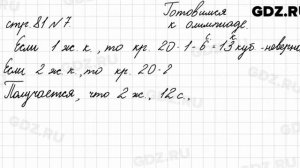 Готовимся
к олимпиаде
GDZ.RU
стр. 81 N 7
Если 1 ж. к., то кр. 20·1-6=13 куб. - неверно
Если 2 ж. к., то кр. 20·2
Получается, что 2 ж., 12 с.,